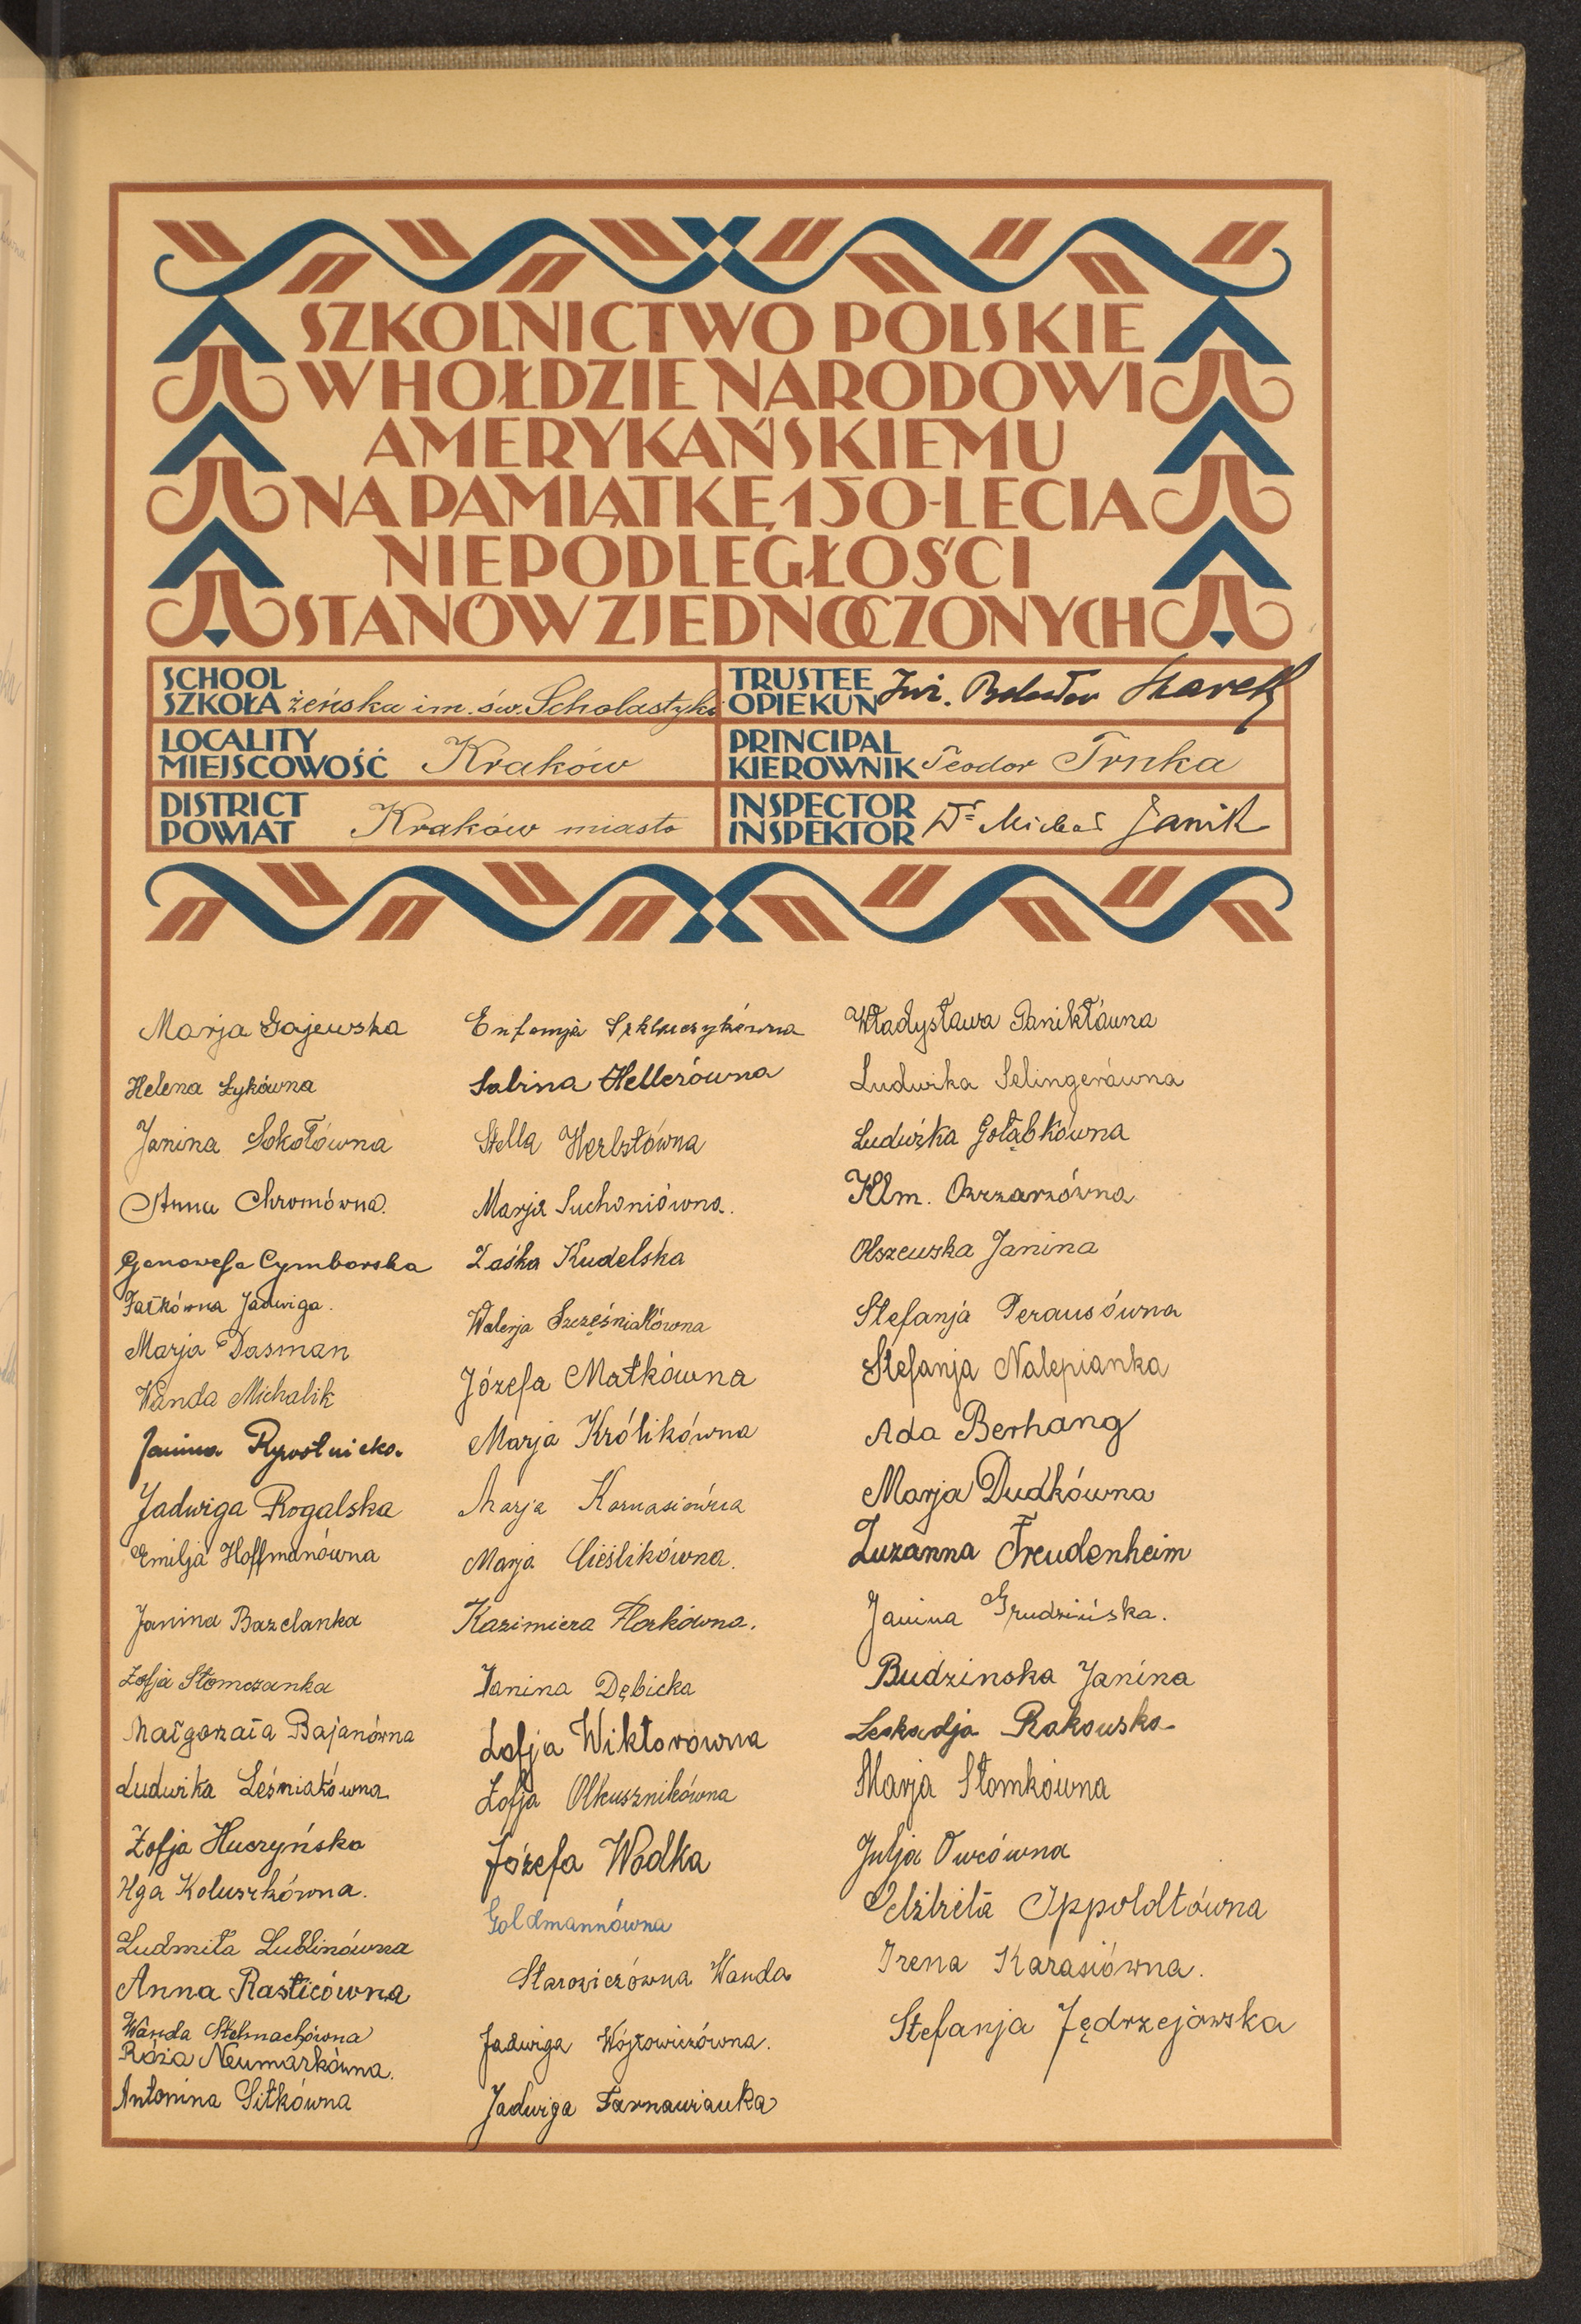 SZKOLNICTWO POLSKIE
W HOŁDZIE NARODOWI
AMERYKAŃSKIEMU
NA PAMIĄTKĘ 150-LECIA
NIEPODLEGŁOŚCI
STANÓW ZJEDNOCZONYCH
SCHOOL
SZKOŁA żeńska im. św. Scholastyki
TRUSTEE
OPIEKUN Inż.
LOCALITY
MIEJSCOWOŚĆ Kraków
PRINCIPAL
KIEROWNIK Teodor Trnka
DISTRICT
POWIAT Kraków miasto
INSPECTOR
INSPEKTOR Dr Michał Janik
Marja Gajewska
Helena Łykówna
Janina Sokołówna
Anna Chromówna.
Genowefa Cymborska
Fałkówna Jadwiga.
Marja Dasman
Wanda Michalik
Janina
Jadwiga Rogalska
Emilja Hoffmanówna
Janina Bazelanka
Zofja Słomczanka
Małgorzata Bajanówna
Ludwika Leśniakówna
Zofja Huczyńska
Olga Koluszkówna.
Ludmiła Lublinówna
Anna Rasticówna
Wanda Stelmachówna
Róża Neumarkówna.
Antonina Sitkówna
Eufemja
Sabina Hellerówna
Stella Herbstówna
Marja Suchoniówna.
Zośka Kudelska
Walerja Szcześniakówna
Józefa Matkówna
Marja Królikówna
Marja Karnasiówna
Marja Cieślikówna.
Kazimiera Florkówna.
Janina Dębicka
Zofja Wiktorówna
Zofja Olkusznikówna
Józefa Wodka
Goldmannówna
Starowiczówna Wanda
Jadwiga Wójtowiczówna.
Jadwiga Tarnawianka
Władysława
Ludwika Selingerówna
Ludwika Gołąbkówna
Klm.
Olszewska Janina
Stefanja Perausówna
Stefanja Nalepianka
Ada Berhang
Marja Dudkówna
Zuzanna Freudenheim
Janina Grudzińska.
Budzinska Janina
Leokadja Rakowska
Marja Słomkówna
Julja Owcówna
Ippoldtówna
Irena Karasiówna.
Stefanja Jędrzejowska